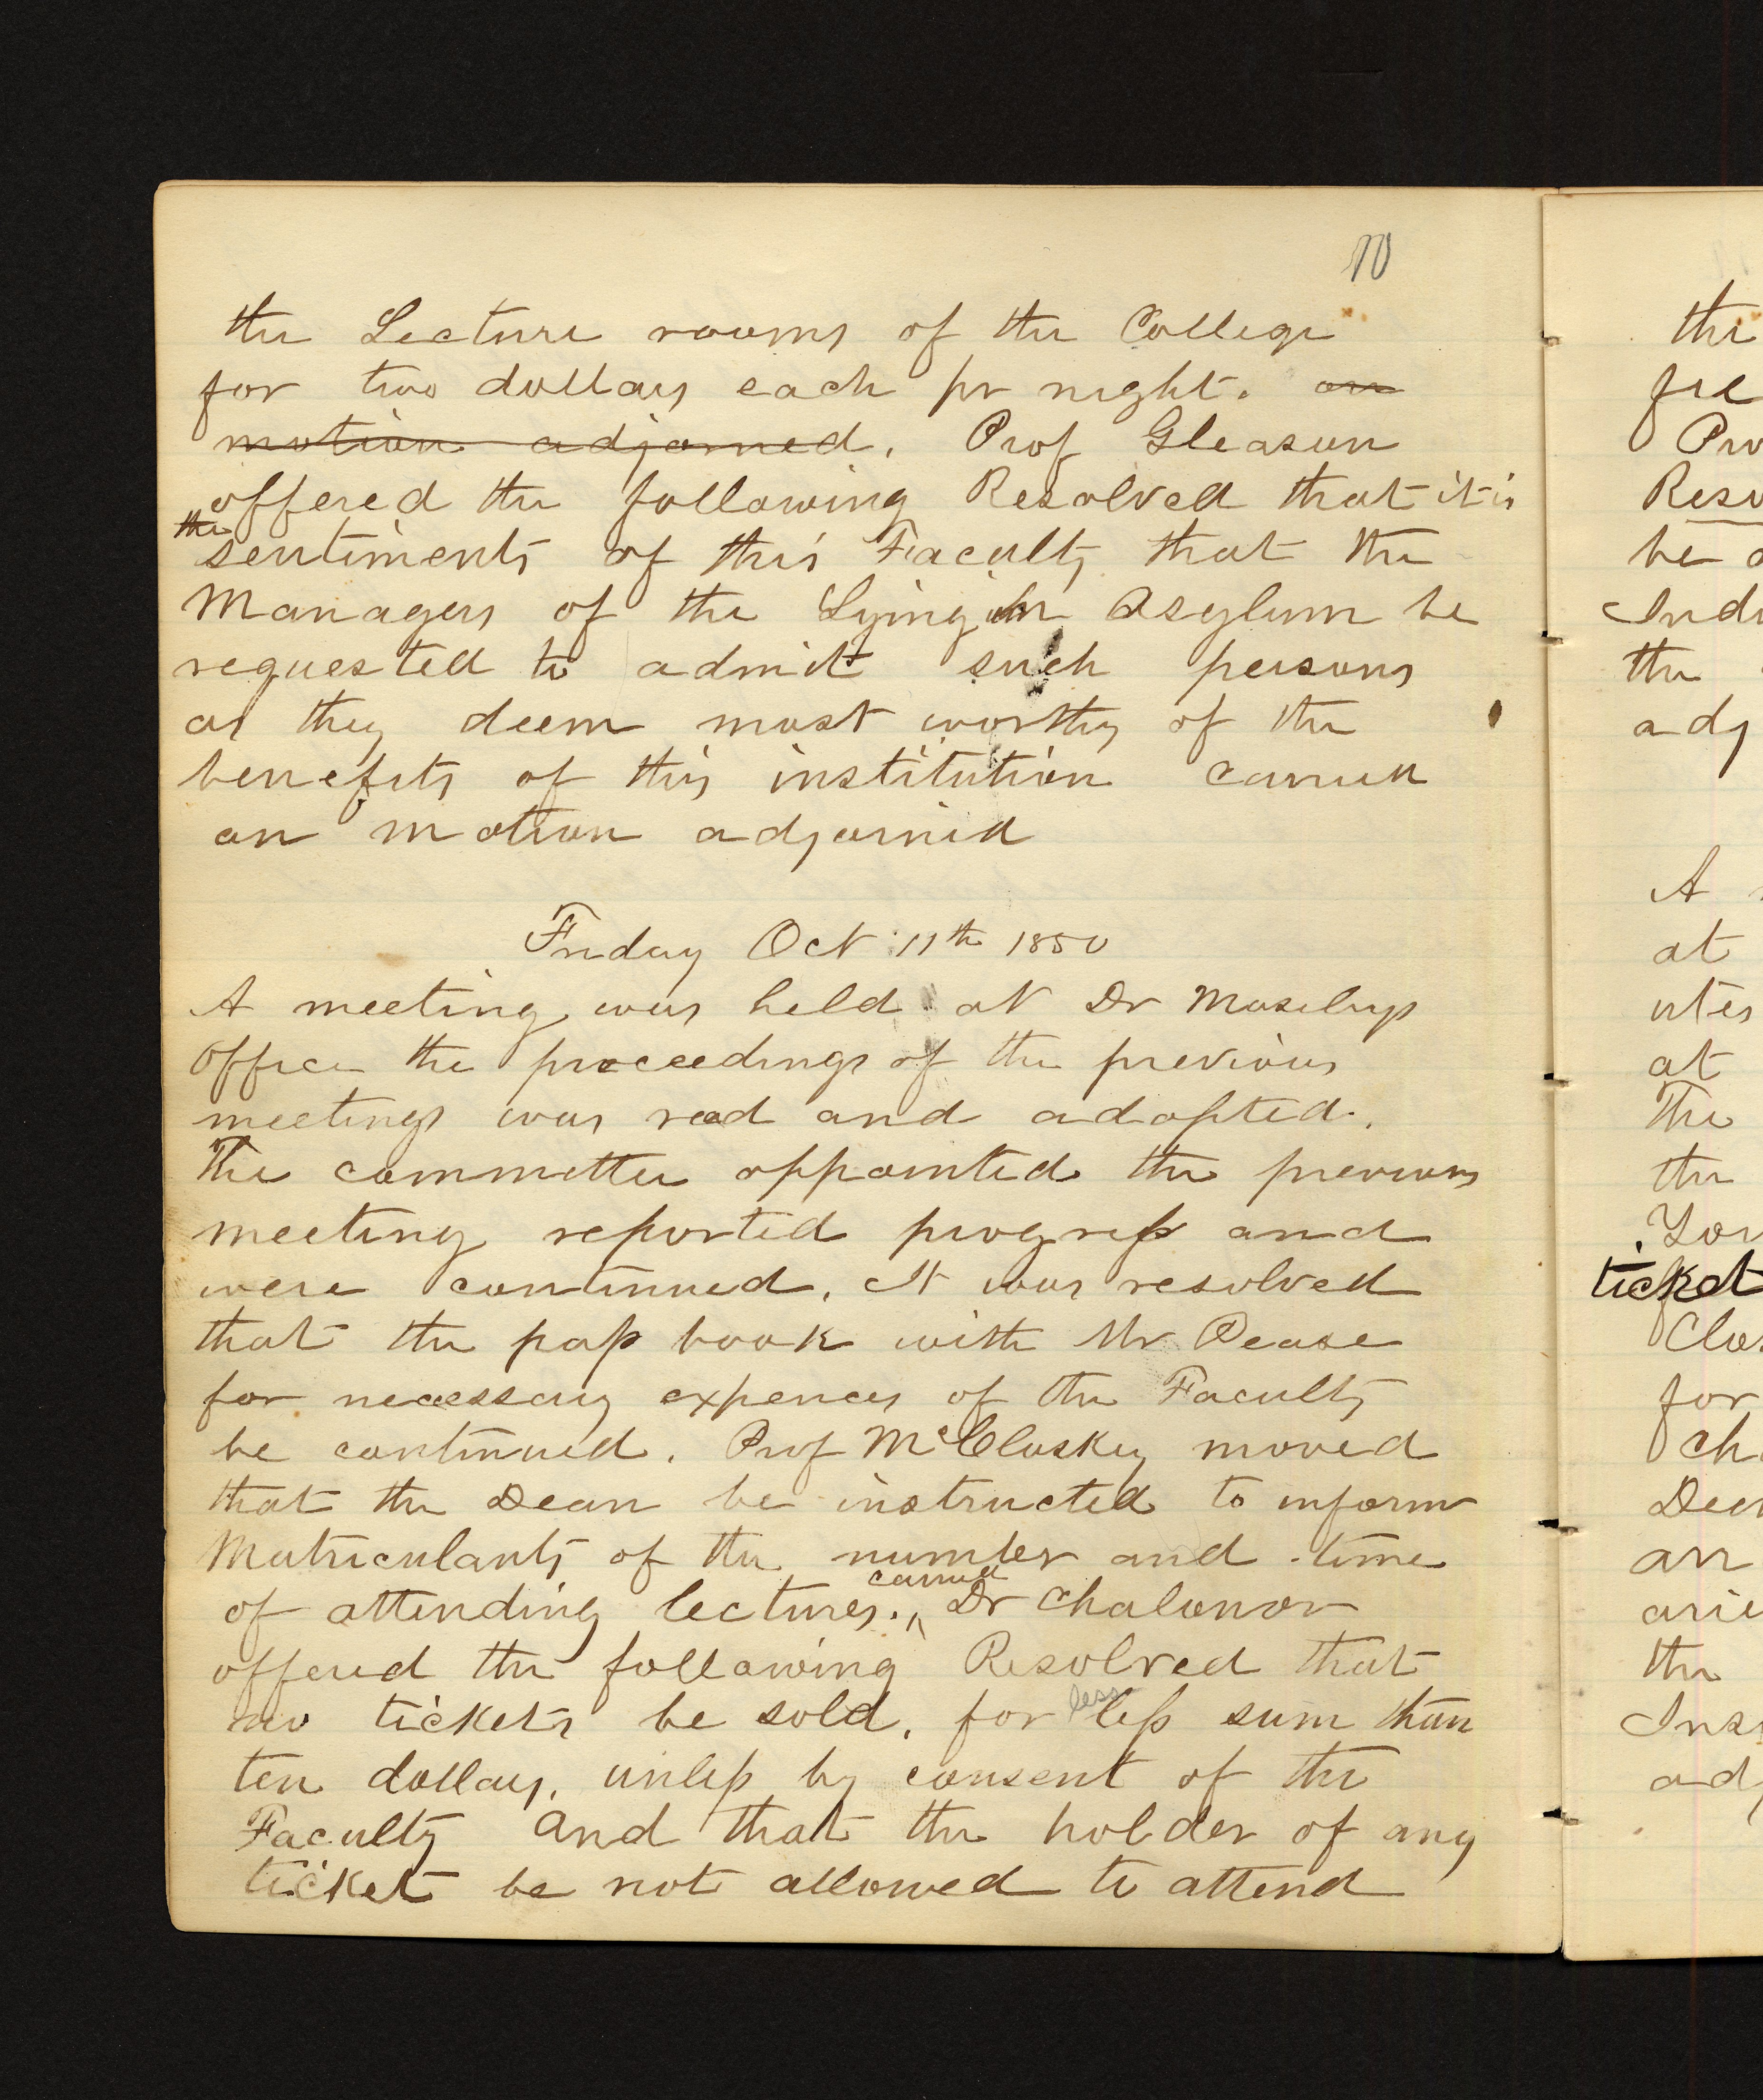 10
the Lecture rooms of the College
for two dollars each pr night. on
motion adjorned. Prof Gleason
offered the following Resolved that it is
the
sentiments of this Faculty that the
Managers of the Lying in Asylum be
requested to admit such persons
as they deem most worthy of the
benefits of this institution carried
on motion adjorned
Friday Oct 11th 1850
A meeting was held at Dr Moselys
Office the proceedings of the previous
meetings was read and adopted.
The committee appointed the previous
meeting reported progress and
were continued. It was resolved
that the pass book with Mr Pease
for necessary expences of the Faculty
be continued. Prof McCloskey moved
that the Dean be instructed to inform
Matriculants of the number and time
carried
of attending lectures. ^ Dr Chaloner
offered the following Resolved that
less
no tickets be sold. for less sum than
ten dollars. unless by consent of the
Faculty and that the holder of any
ticket be not allowed to attend
the
Resu
be
the
adj
A
at
utes
at
The
the
ticket
for
an
the